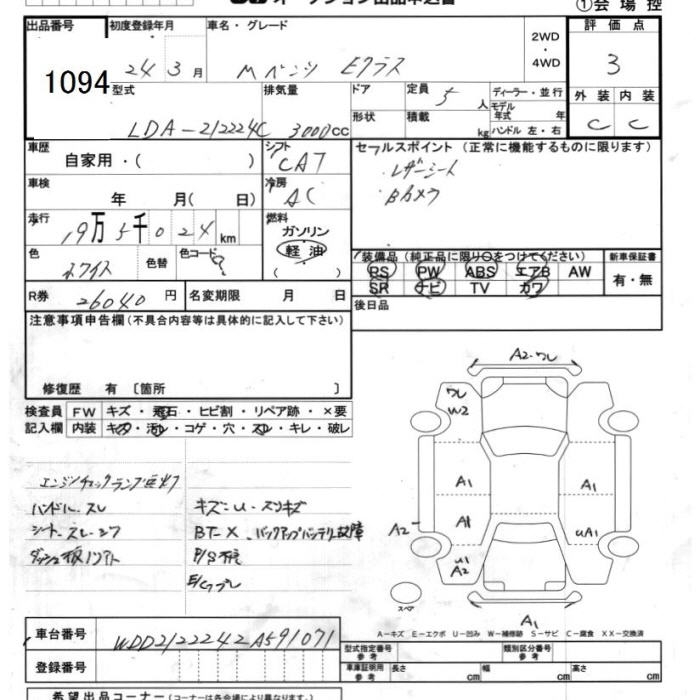 オークション出品申込書
①会場控
出品番号 初度登録年月 車名・グレード 2WD・4WD 評価点
1094 24 3月 Mベンツ Eクラス 3
型式 排気量 ドア 定員 5人 ディーラー・並行 外装 内装
LDA-212224C 3000cc 形状 積載 kg モデル年式 年 ハンドル 左・右 C C
車歴 自家用・( ) シフト CA7 セールスポイント (正常に機能するものに限ります)
レザーシート
Bカメラ
車検 年 月( 日) 冷房 AC
走行 19万5千024km 燃料 ガソリン 軽油 ( )
色 ホワイト 色替 色コード
装備品 (純正品に限り○をつけてください) 新車保証書
PS PW ABS エアB AW 有・無
SR ナビ TV カワ
R券 26040円 名変期限 月 日 後日品
注意事項申告欄 (不具合内容等は具体的に記入して下さい)
修復歴 有 〔箇所 〕
検査員 FW キズ・飛石・ヒビ割・リペア跡・×要
記入欄 内装 キズ・汚レ・コゲ・穴・スレ・キレ・破レ
エンジンチェックランプ点灯
ハンドル.スレ キズ-U・スリキズ
シート.スレ・シワ BT-X.バックアップバッテリ故障
A2-ワレ
ワレ
W2
A1 A1
A2 A1 UA1
U1
A2
スペア
A1
A-キズ E-エクボ U-凹み W-補修跡 S-サビ C-腐食 XX-交換済
車台番号 WDD2122242A591071
登録番号
型式指定番号 参考 類別区分番号 参考
車庫証明用 参考 長さ cm 幅 cm 高さ cm
希望出品コーナー (コーナーは各会場により異なります。)